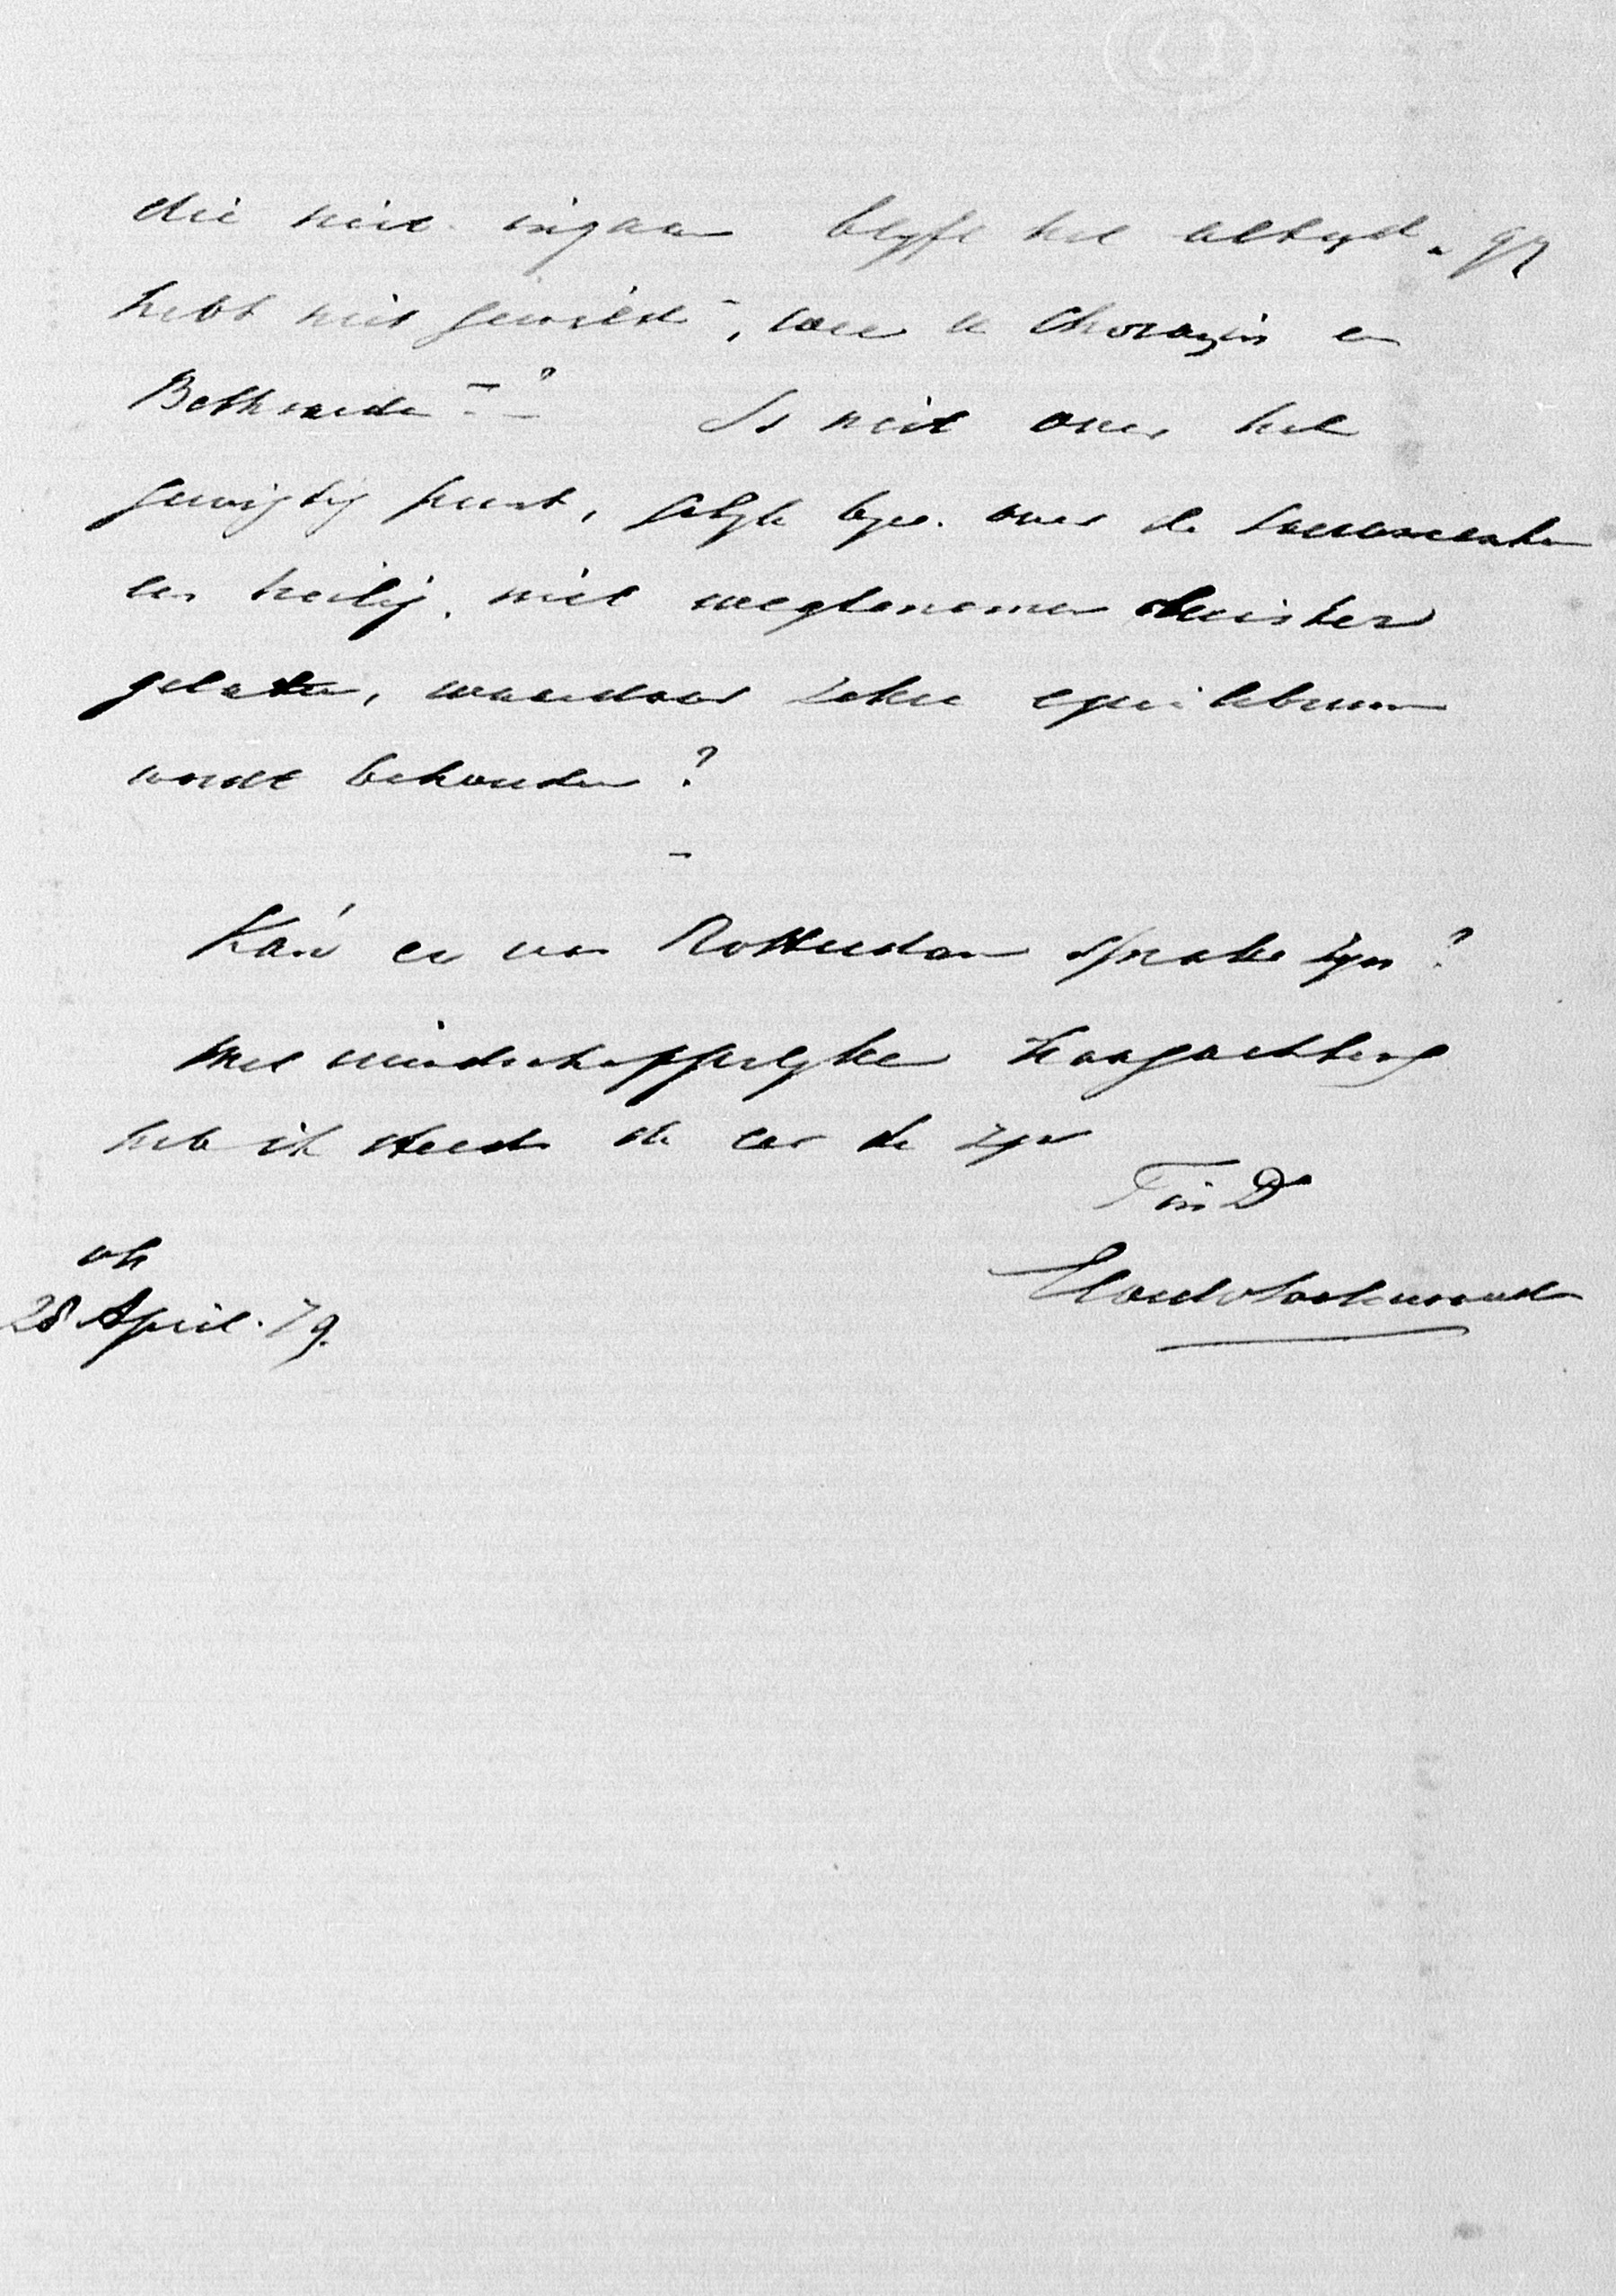 die niet ingaan blyft het altyd „gy
hebt niet gewild", wee u Chorazin en
Bethsaida"? Is niet over het
gewigtig punt, gelyk byv. over de sacramenten
een heilig, niet wegtenemen duister
gelaten, waardoor zeker equilibrium
wordt behouden?
Kan er van Rotterdam sprake zyn?
Met vriendschappelyke hoogachting
heb ik steeds de eer te zyn
28 April. 79.